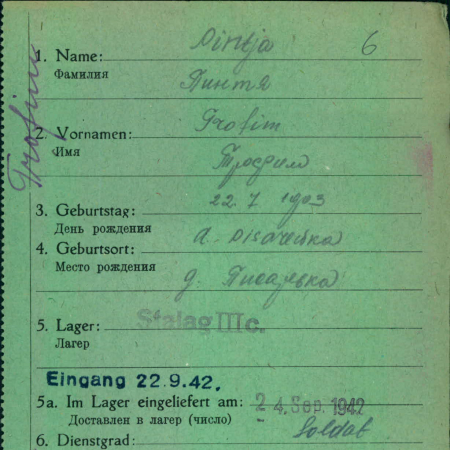 Pintja 6
1. Name:
Фамилия
Пинтя
Trofim
2. Vornamen:
Имя
Трофим
Trofim
22. 7 1903
3. Geburtstag:
День рождения
4. Geburtsort: d. Pisarewka
Место рождения
д. Писаревка
5. Lager: Stalag III c.
Лагер
Eingang 22.9.42.
5a. Im Lager eingeliefert am: 24. Sep. 1942
Доставлен в лагер (число)
6. Dienstgrad: Soldat